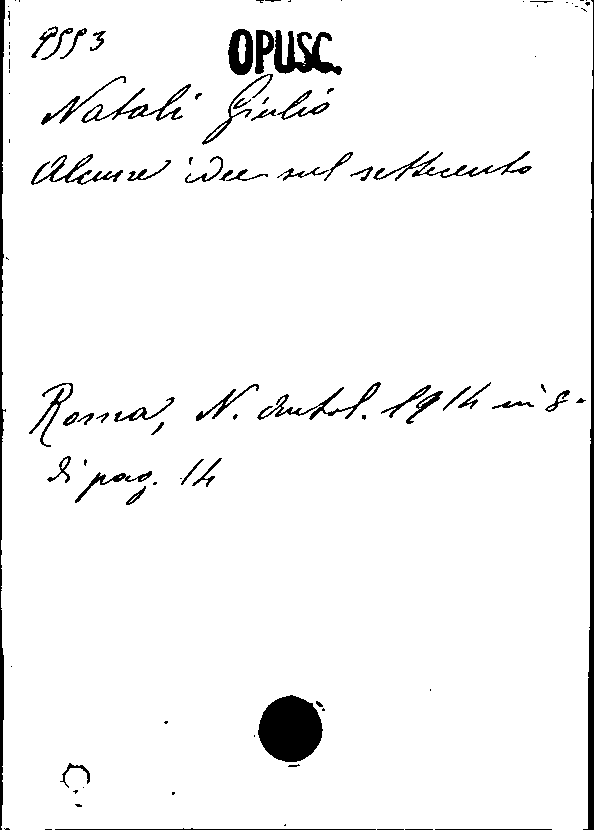 9553
OPUSC.
Natali Giulio
Alcune idee sul settecento
Roma, N. Antol. 1914 in 8.
di pag. 14